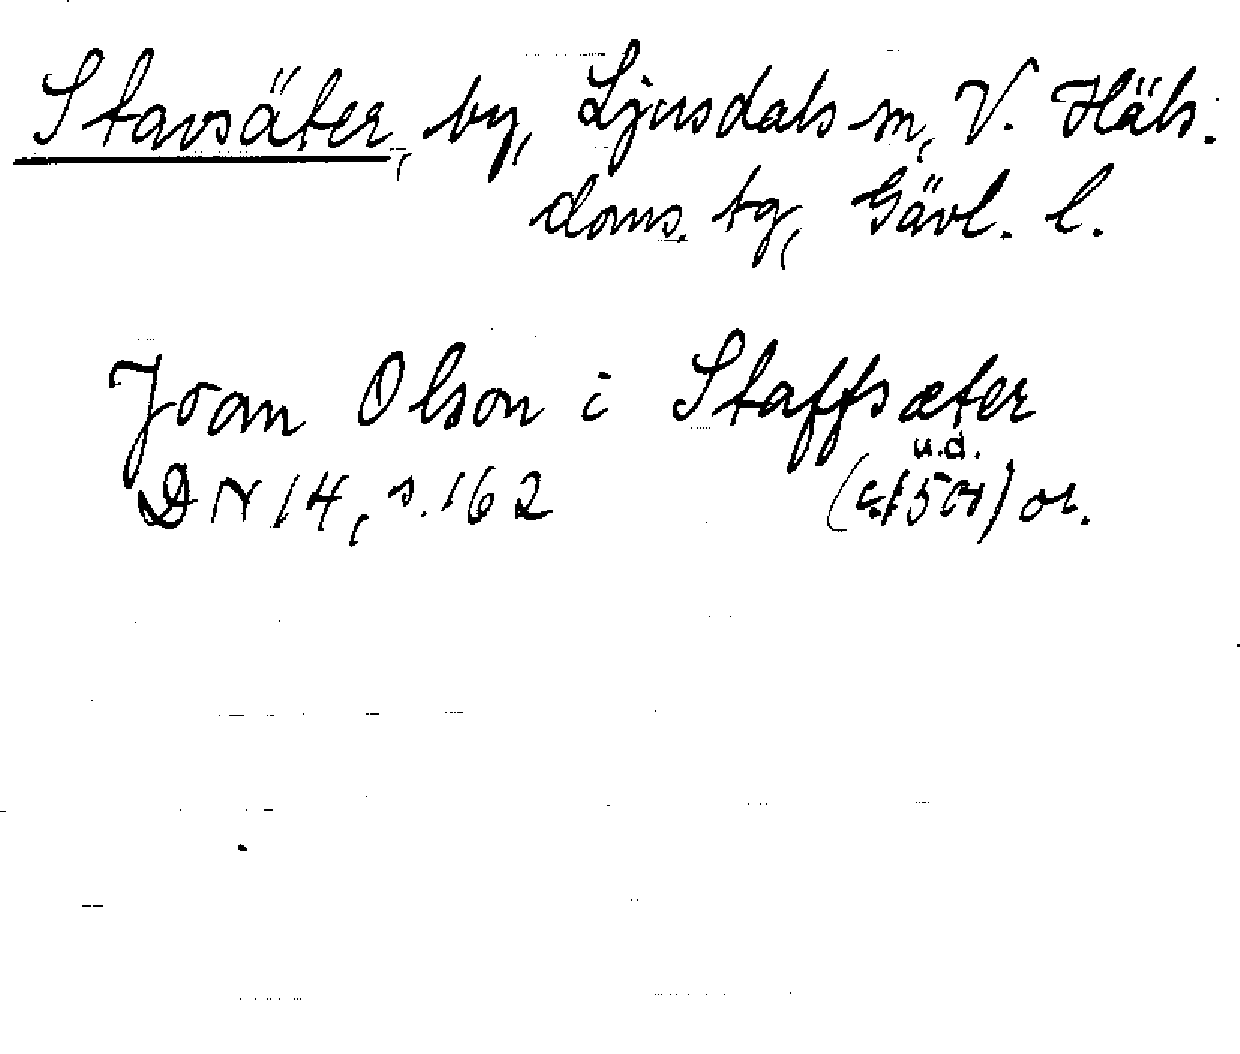 Stavsäter, by, Ljusdals sn, V. Häls.
doms. tg, Gävl. l.
Joan Olson i Staffsæter
u.d.
DN 14, s. 162 (c. 1501) or.